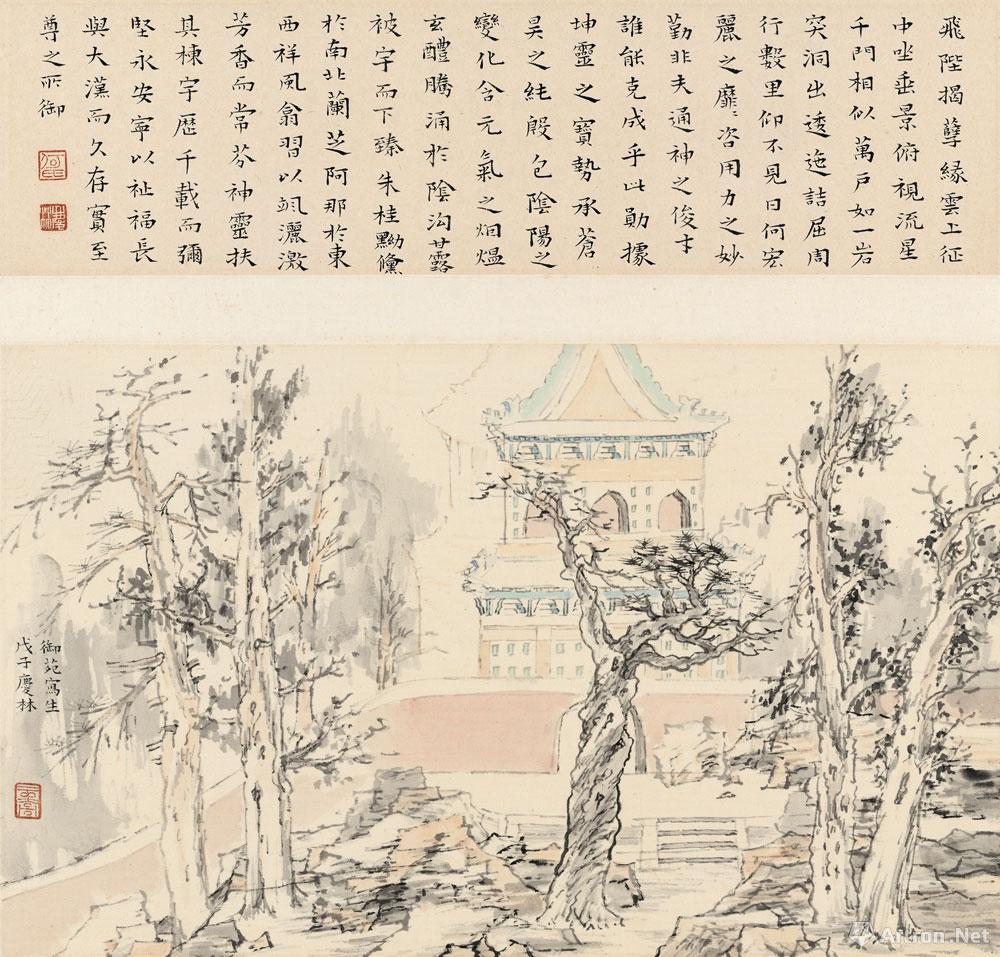 飛陛揭孽緣雲上征
中坐垂景俯視流星
千門相似萬戶如一岩
突洞出逶迤詰屈周
行數里仰不見日何宏
麗之靡〻咨用力之妙
勤非夫通神之俊才
誰能克成乎此勛據
坤靈之寶勢承蒼
昊之純殷包陰陽之
變化含元氣之烟熅
玄醴騰涌於陰沟甘露
被宇而下臻朱桂黝儵
於南北蘭芝阿那於東
西祥風翕習以颯灑激
芳香而常芬神靈扶
其棟宇歷千載而彌
堅永安寧以祉福長
與大漢而久存實至
尊之所御
御苑寫生
戊子慶林
Artron.Net